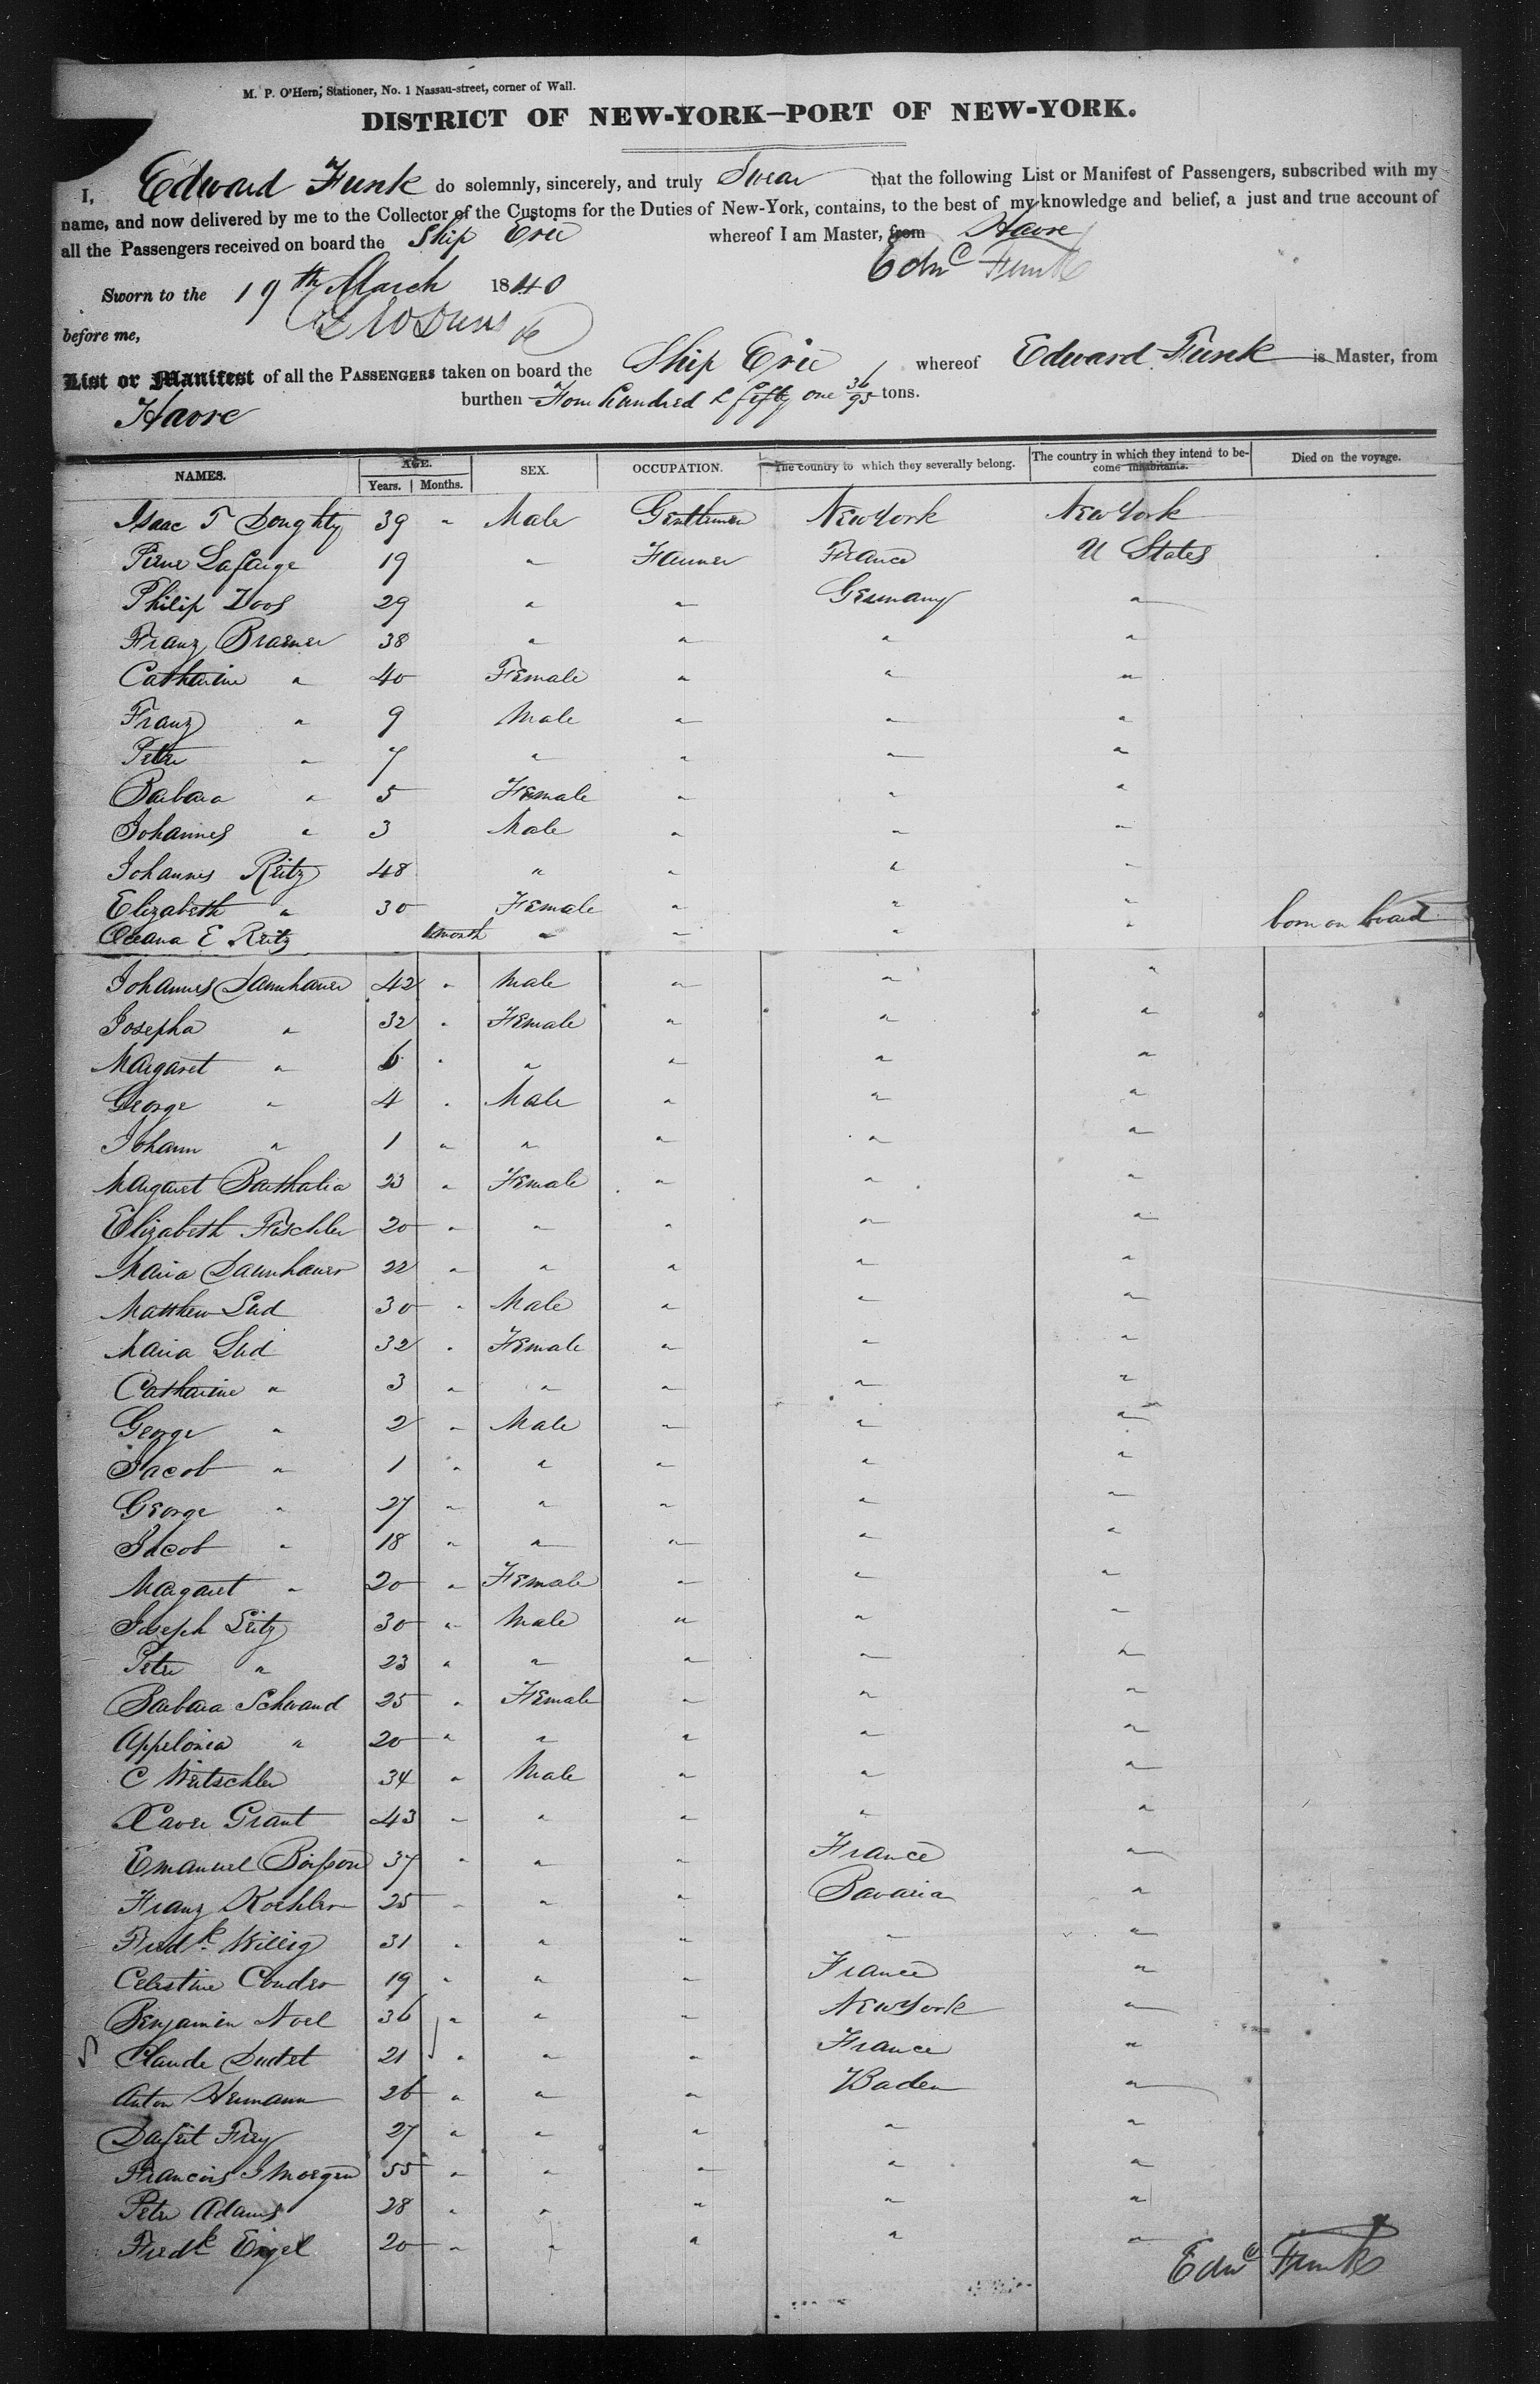 M. P. O'Hern, Stationer, No. 1 Nassau-street, corner of Wall.
DISTRICT OF NEW-YORK—PORT OF NEW-YORK.
I, Edward Funk do solemnly, sincerely, and truly Swear that the following List or Manifest of Passengers, subscribed with my
name, and now delivered by me to the Collector of the Customs for the Duties of New-York, contains, to the best of my knowledge and belief, a just and true account of
all the Passengers received on board the Ship Erie whereof I am Master, from Havre
Sworn to the 19th March 1840 Edwd Funk
before me,
List or Manifest of all the PASSENGERS taken on board the Ship Erie whereof Edward Funk is Master, from
Havre burthen Four hundred & fifty one 36/95 tons.
NAMES. AGE. SEX. OCCUPATION. The country to which they severally belong. The country in which they intend to be- Died on the voyage.
Years. Months. come inhabitants.
Isaac T Doughty 39 " Male Gentleman New York New York
Pierre Lafarge 19 " Farmer France U States
Philip Doos 29 " " Germany "
Franz Braener 38 " " " "
Catharine " 40 Female " " "
Franz " 9 Male " " "
Peter " 7 " " " "
Barbara " 5 Female " " "
Johannes " 3 Male " " "
Johannes Reitz 48 " " " "
Elizabeth " 30 Female " " "
Oceana E Reitz 1 month " " " " born on board
Johannes Dannhauer 42 " Male " " "
Josepha " 32 " Female " " "
Margaret " 6 " " " " "
George " 4 " Male " " "
Johann " 1 " " " " "
Margaret Barthalia 23 " Female " " "
Elizabeth Fischler 20 " " " " "
Maria Dannhauer 22 " " " " "
Matthew Lud 30 " Male " " "
Maria Lud 32 " Female " " "
Catharine " 3 " " " " "
George " 2 " Male " " "
Jacob " 1 " " " " "
George " 27 " " " " "
Jacob " 18 " " " " "
Margaret " 20 " Female " " "
Joseph Leitz 30 " Male " " "
Peter " 23 " " " " "
Barbara Schwand 25 " Female " " "
Appelonia " 20 " " " " "
C Wertschler 34 " Male " " "
Xaver Grant 43 " " " " "
Emanuel Boisson 37 " " " France "
Franz Koehler 25 " " " Bavaria "
Fredk Willig 31 " " " " "
Celestine Condro 19 " " " France "
Benjamin Noel 36 " " " New York "
Claude Dudet 21 " " " France "
Anton Hermann 26 " " " Baden "
Frey 27 " " " " "
Francois J Morgen 55 " " " " "
Peter Adams 28 " " " " "
Fredk Engel 20 " " " " "
Edwd Funk